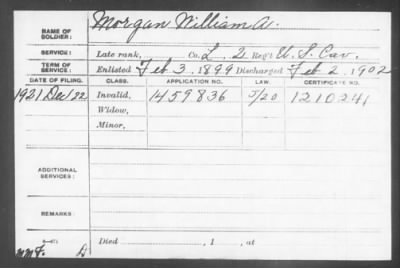 NAME OF SOLDIER: Morgan William A.
SERVICE: Late rank, Co. L. 2 Reg't U. S. Cav.
TERM OF SERVICE: Enlisted Feb 3, 1899 Discharged Feb 2, 1902
DATE OF FILING. CLASS. APPLICATION NO. LAW. CERTIFICATE NO.
1921 Dec/22 Invalid, 1459836 J/20 1210241
Widow,
Minor,
ADDITIONAL SERVICES:
REMARKS:
Died , 1 , at